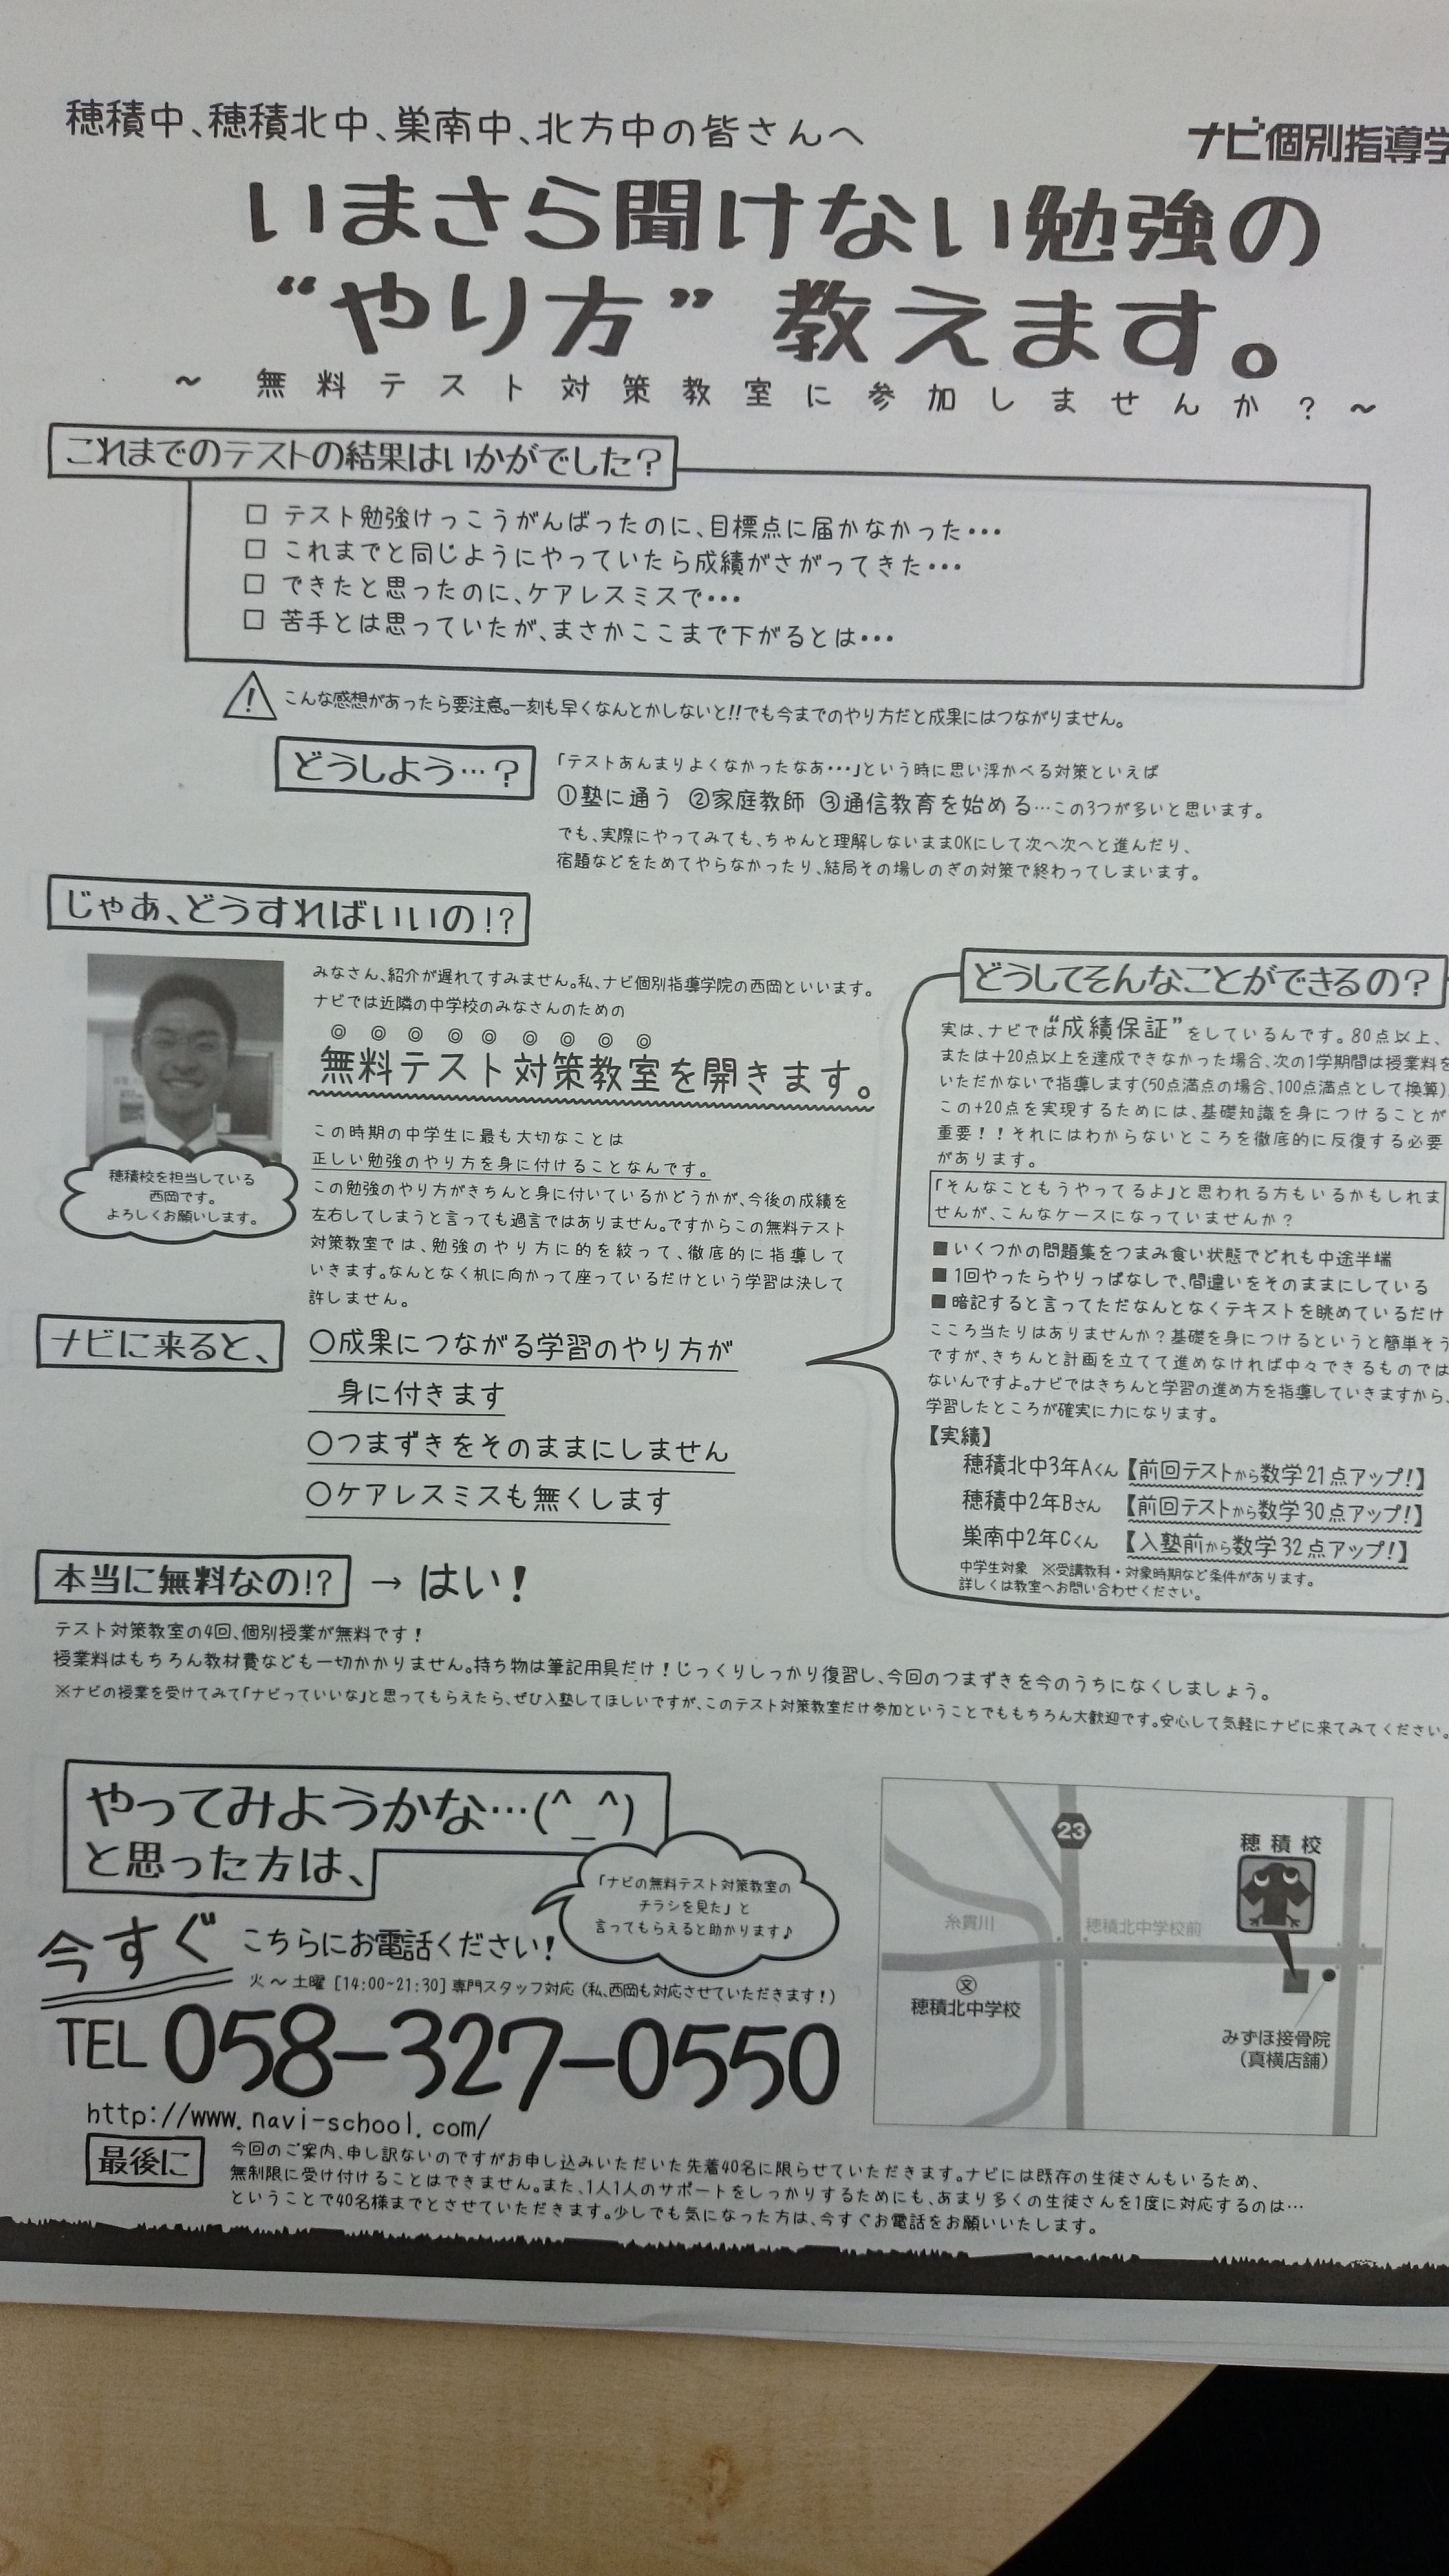 穂積中、穂積北中、巣南中、北方中の皆さんへ
ナビ個別指導学
いまさら聞けない勉強の
“やり方”教えます。
～無料テスト対策教室に参加しませんか？～
これまでのテストの結果はいかがでした？
□ テスト勉強けっこうがんばったのに、目標点に届かなかった・・・
□ これまでと同じようにやっていたら成績がさがってきた・・・
□ できたと思ったのに、ケアレスミスで・・・
□ 苦手とは思っていたが、まさかここまで下がるとは・・・
! こんな感想があったら要注意。一刻も早くなんとかしないと!!でも今までのやり方だと成果にはつながりません。
どうしよう…？
「テストあんまりよくなかったなあ・・・」という時に思い浮かべる対策といえば
①塾に通う ②家庭教師 ③通信教育を始める…この3つが多いと思います。
でも、実際にやってみても、ちゃんと理解しないままOKにして次へ次へと進んだり、
宿題などをためてやらなかったり、結局その場しのぎの対策で終わってしまいます。
じゃあ、どうすればいいの!?
みなさん、紹介が遅れてすみません。私、ナビ個別指導学院の西岡といいます。
ナビでは近隣の中学校のみなさんのための
◎◎◎◎◎◎◎◎◎
無料テスト対策教室を開きます。
穂積校を担当している
西岡です。
よろしくお願いします。
この時期の中学生に最も大切なことは
正しい勉強のやり方を身に付けることなんです。
この勉強のやり方がきちんと身に付いているかどうかが、今後の成績を
左右してしまうと言っても過言ではありません。ですからこの無料テスト
対策教室では、勉強のやり方に的を絞って、徹底的に指導して
いきます。なんとなく机に向かって座っているだけという学習は決して
許しません。
ナビに来ると、
○成果につながる学習のやり方が
身に付きます
○つまずきをそのままにしません
○ケアレスミスも無くします
どうしてそんなことができるの？
実は、ナビでは“成績保証”をしているんです。80点以上、
または＋20点以上を達成できなかった場合、次の1学期間は授業料を
いただかないで指導します(50点満点の場合、100点満点として換算)
この+20点を実現するためには、基礎知識を身につけることが
重要！！それにはわからないところを徹底的に反復する必要
があります。
「そんなこともうやってるよ」と思われる方もいるかもしれま
せんが、こんなケースになっていませんか？
■ いくつかの問題集をつまみ食い状態でどれも中途半端
■ 1回やったらやりっぱなしで、間違いをそのままにしている
■ 暗記すると言ってただなんとなくテキストを眺めているだけ
こころ当たりはありませんか？基礎を身につけるというと簡単そう
ですが、きちんと計画を立てて進めなければ中々できるものでは
ないんですよ。ナビではきちんと学習の進め方を指導していきますから、
学習したところが確実に力になります。
【実績】
穂積北中3年Aくん【前回テストから数学21点アップ!】
穂積中2年Bさん【前回テストから数学30点アップ!】
巣南中2年Cくん【入塾前から数学32点アップ!】
中学生対象 ※受講教科・対象時期など条件があります。
詳しくは教室へお問い合わせください。
本当に無料なの!? → はい！
テスト対策教室の4回、個別授業が無料です！
授業料はもちろん教材費なども一切かかりません。持ち物は筆記用具だけ！じっくりしっかり復習し、今回のつまずきを今のうちになくしましょう。
※ナビの授業を受けてみて「ナビっていいな」と思ってもらえたら、ぜひ入塾してほしいですが、このテスト対策教室だけ参加ということでももちろん大歓迎です。安心して気軽にナビに来てみてください。
やってみようかな…(^_^)
と思った方は、
「ナビの無料テスト対策教室の
チラシを見た」と
言ってもらえると助かります♪
今すぐ こちらにお電話ください！
火～土曜 [14:00~21:30] 専門スタッフ対応（私、西岡も対応させていただきます！）
TEL 058-327-0550
http://www.navi-school.com/
23
穂積校
糸貫川
穂積北中学校前
文
穂積北中学校
みずほ接骨院
（真横店舗）
最後に
今回のご案内、申し訳ないのですがお申し込みいただいた先着40名に限らせていただきます。ナビには既存の生徒さんもいるため、
無制限に受け付けることはできません。また、1人1人のサポートをしっかりするためにも、あまり多くの生徒さんを1度に対応するのは…
ということで40名様までとさせていただきます。少しでも気になった方は、今すぐお電話をお願いいたします。